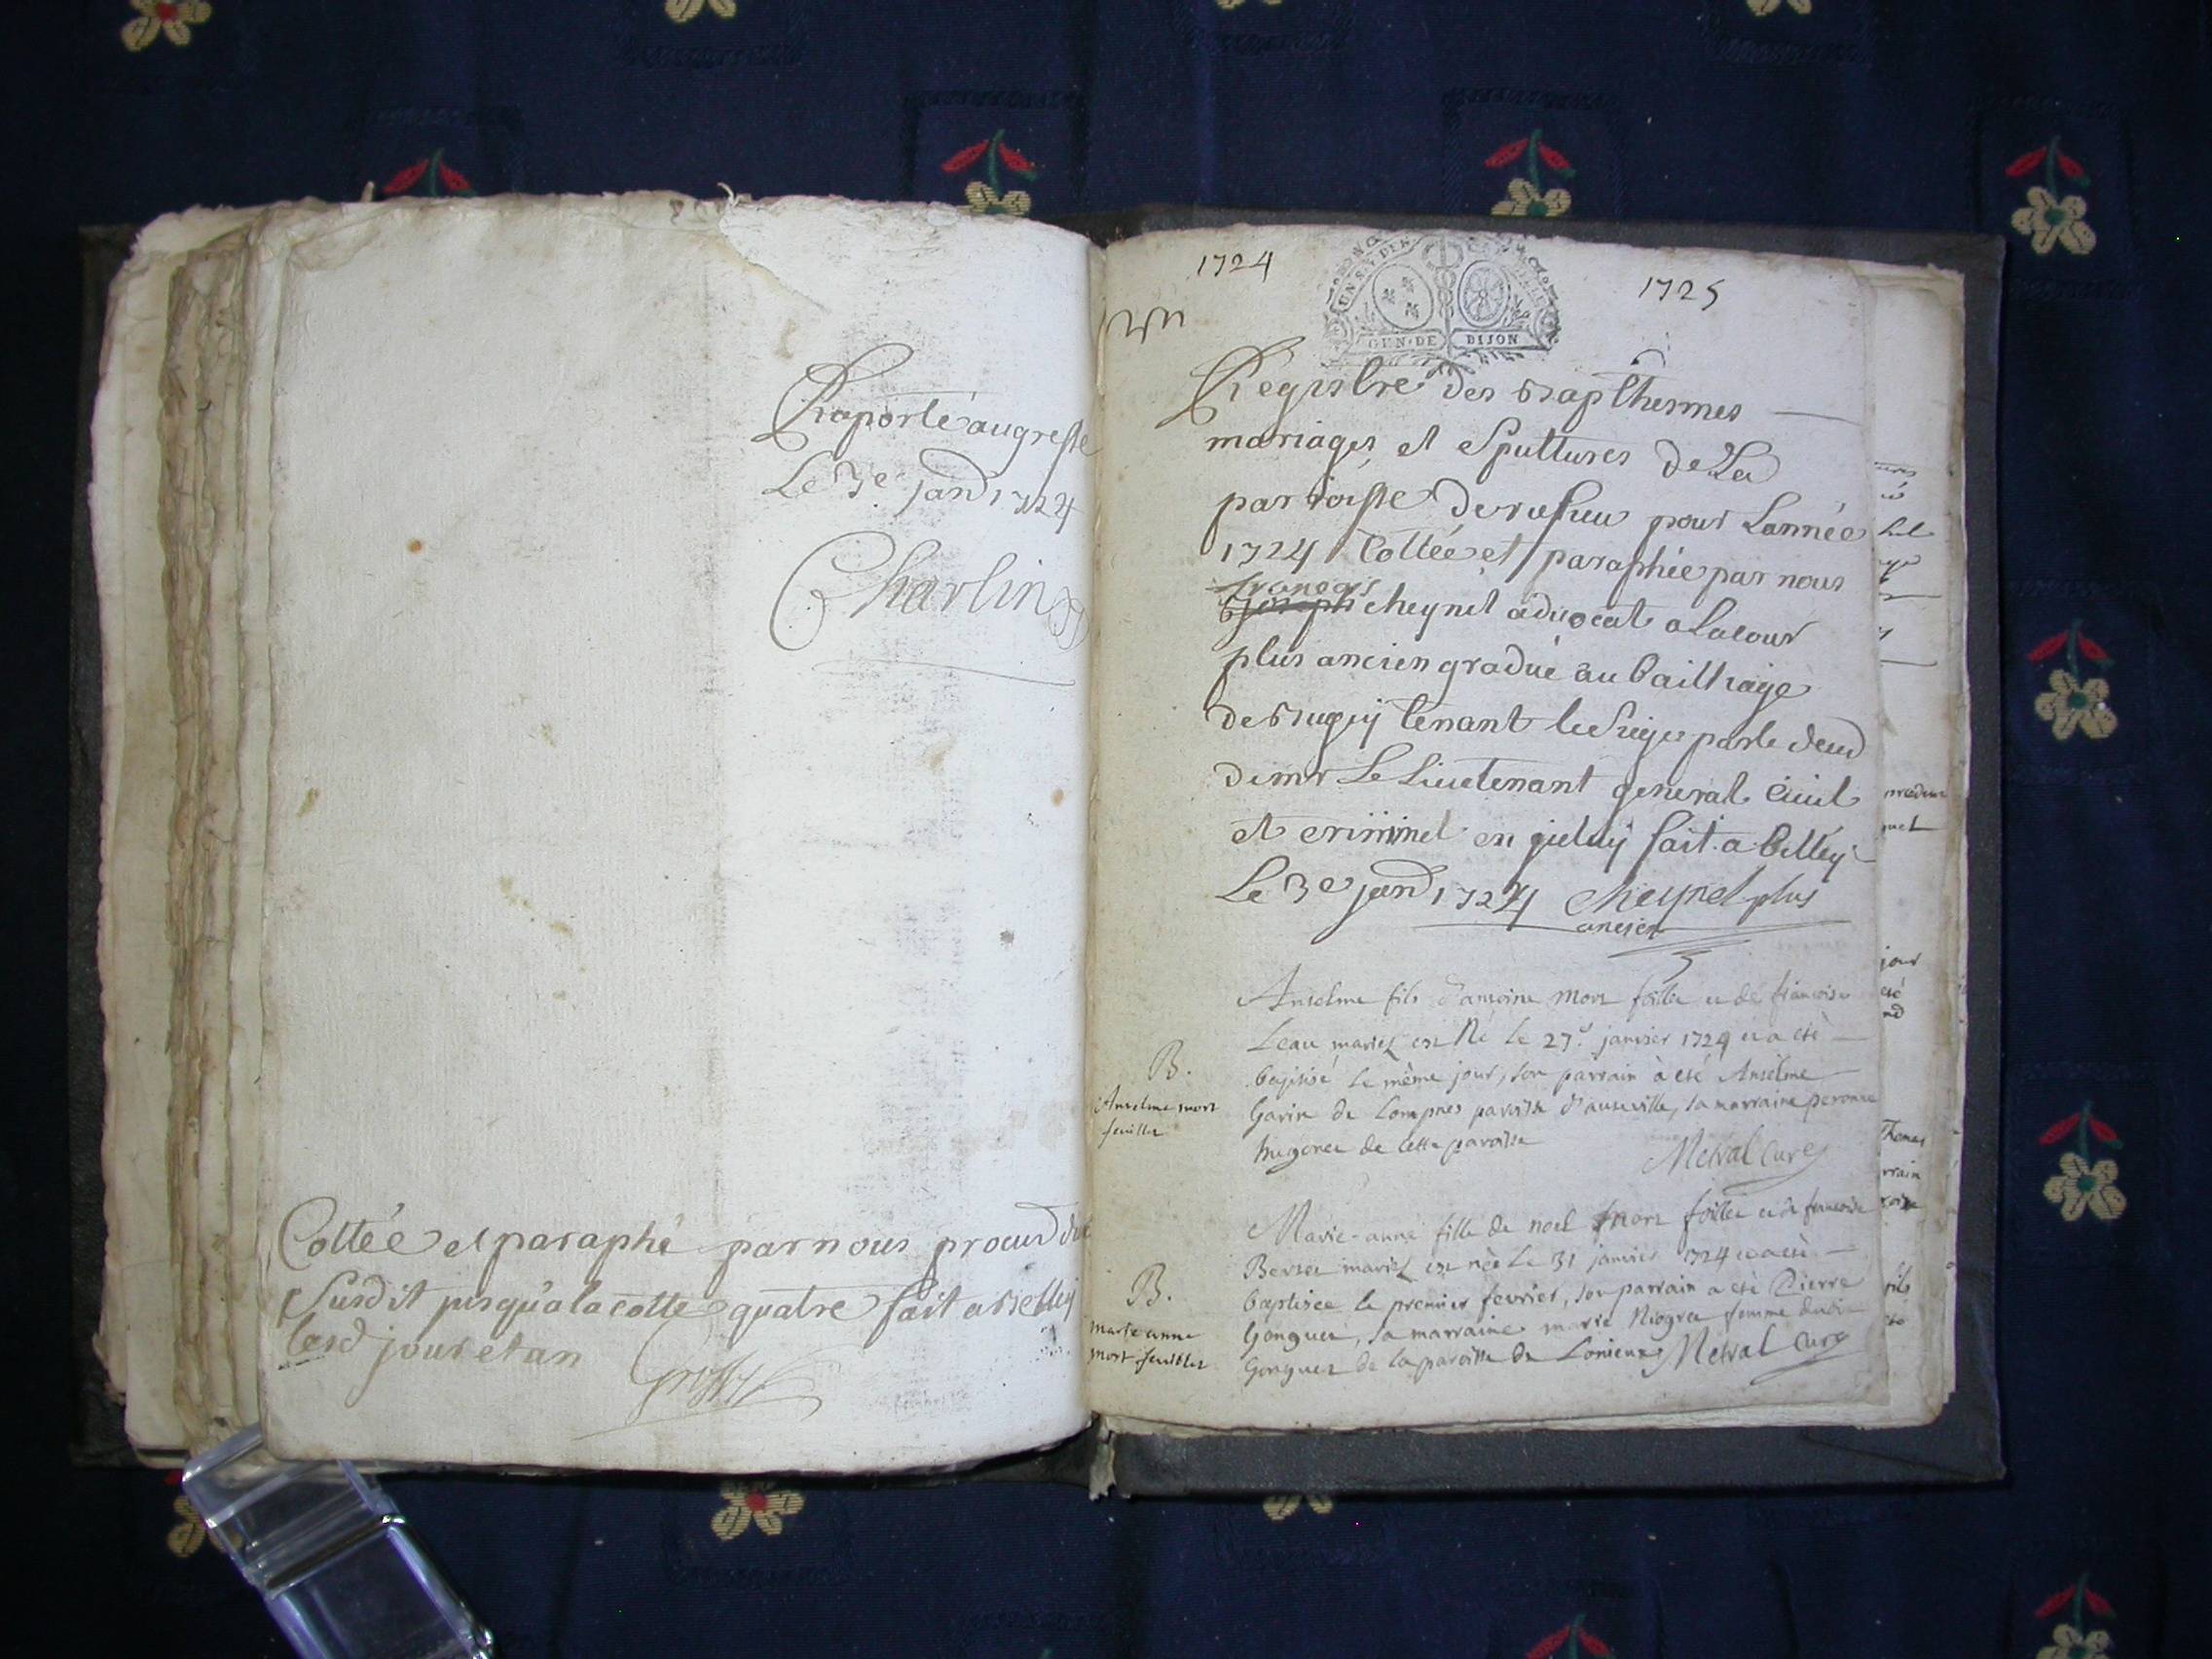 Raporté au greffe
Le 3e janv 1724
Charlin
Cottée et paraphé par nous procud du
Susdit jusqu'a la cotte quatre fait a Belley
lesd jour et an
1724
1725
GEN·DE DIJON
Registre des bapthesmes
mariages et Spultures de La
parroisse de rufieu pour Lannée
1724 Cottée et paraphée par nous
francois
joseph cheynet advocat a La cour
plus ancien gradué au bailliage
de Bugey tenant le Siege par le deced
de mr Le Lieutenant general Civil
et criminel en yieluy fait a belley
Le 3e janv 1724 Cheynet plus
ancien
Anselme fils d'antoine mort foillie et de francoise
Leau mariez est Né le 27e janvier 1724 et a eté
B.
baptisé le même jour, son parrain à eté Anselme
Anselme mort
feuillet
Garin de Lompnes paroisse d'auteville, sa marraine peronne
hugonet de cette paroisse
Metral Curé
Marie-anne fille de noel mort foillie et de francoise
mariez est née le 31 janvier 1724 et a eté
B.
baptisée le premier fevrier, son parrain a eté Pierre
marie anne
Gonguet, sa marraine marie femme dudit
mort feuillet
Gonguet de la paroisse de Lonieux Metral Curé